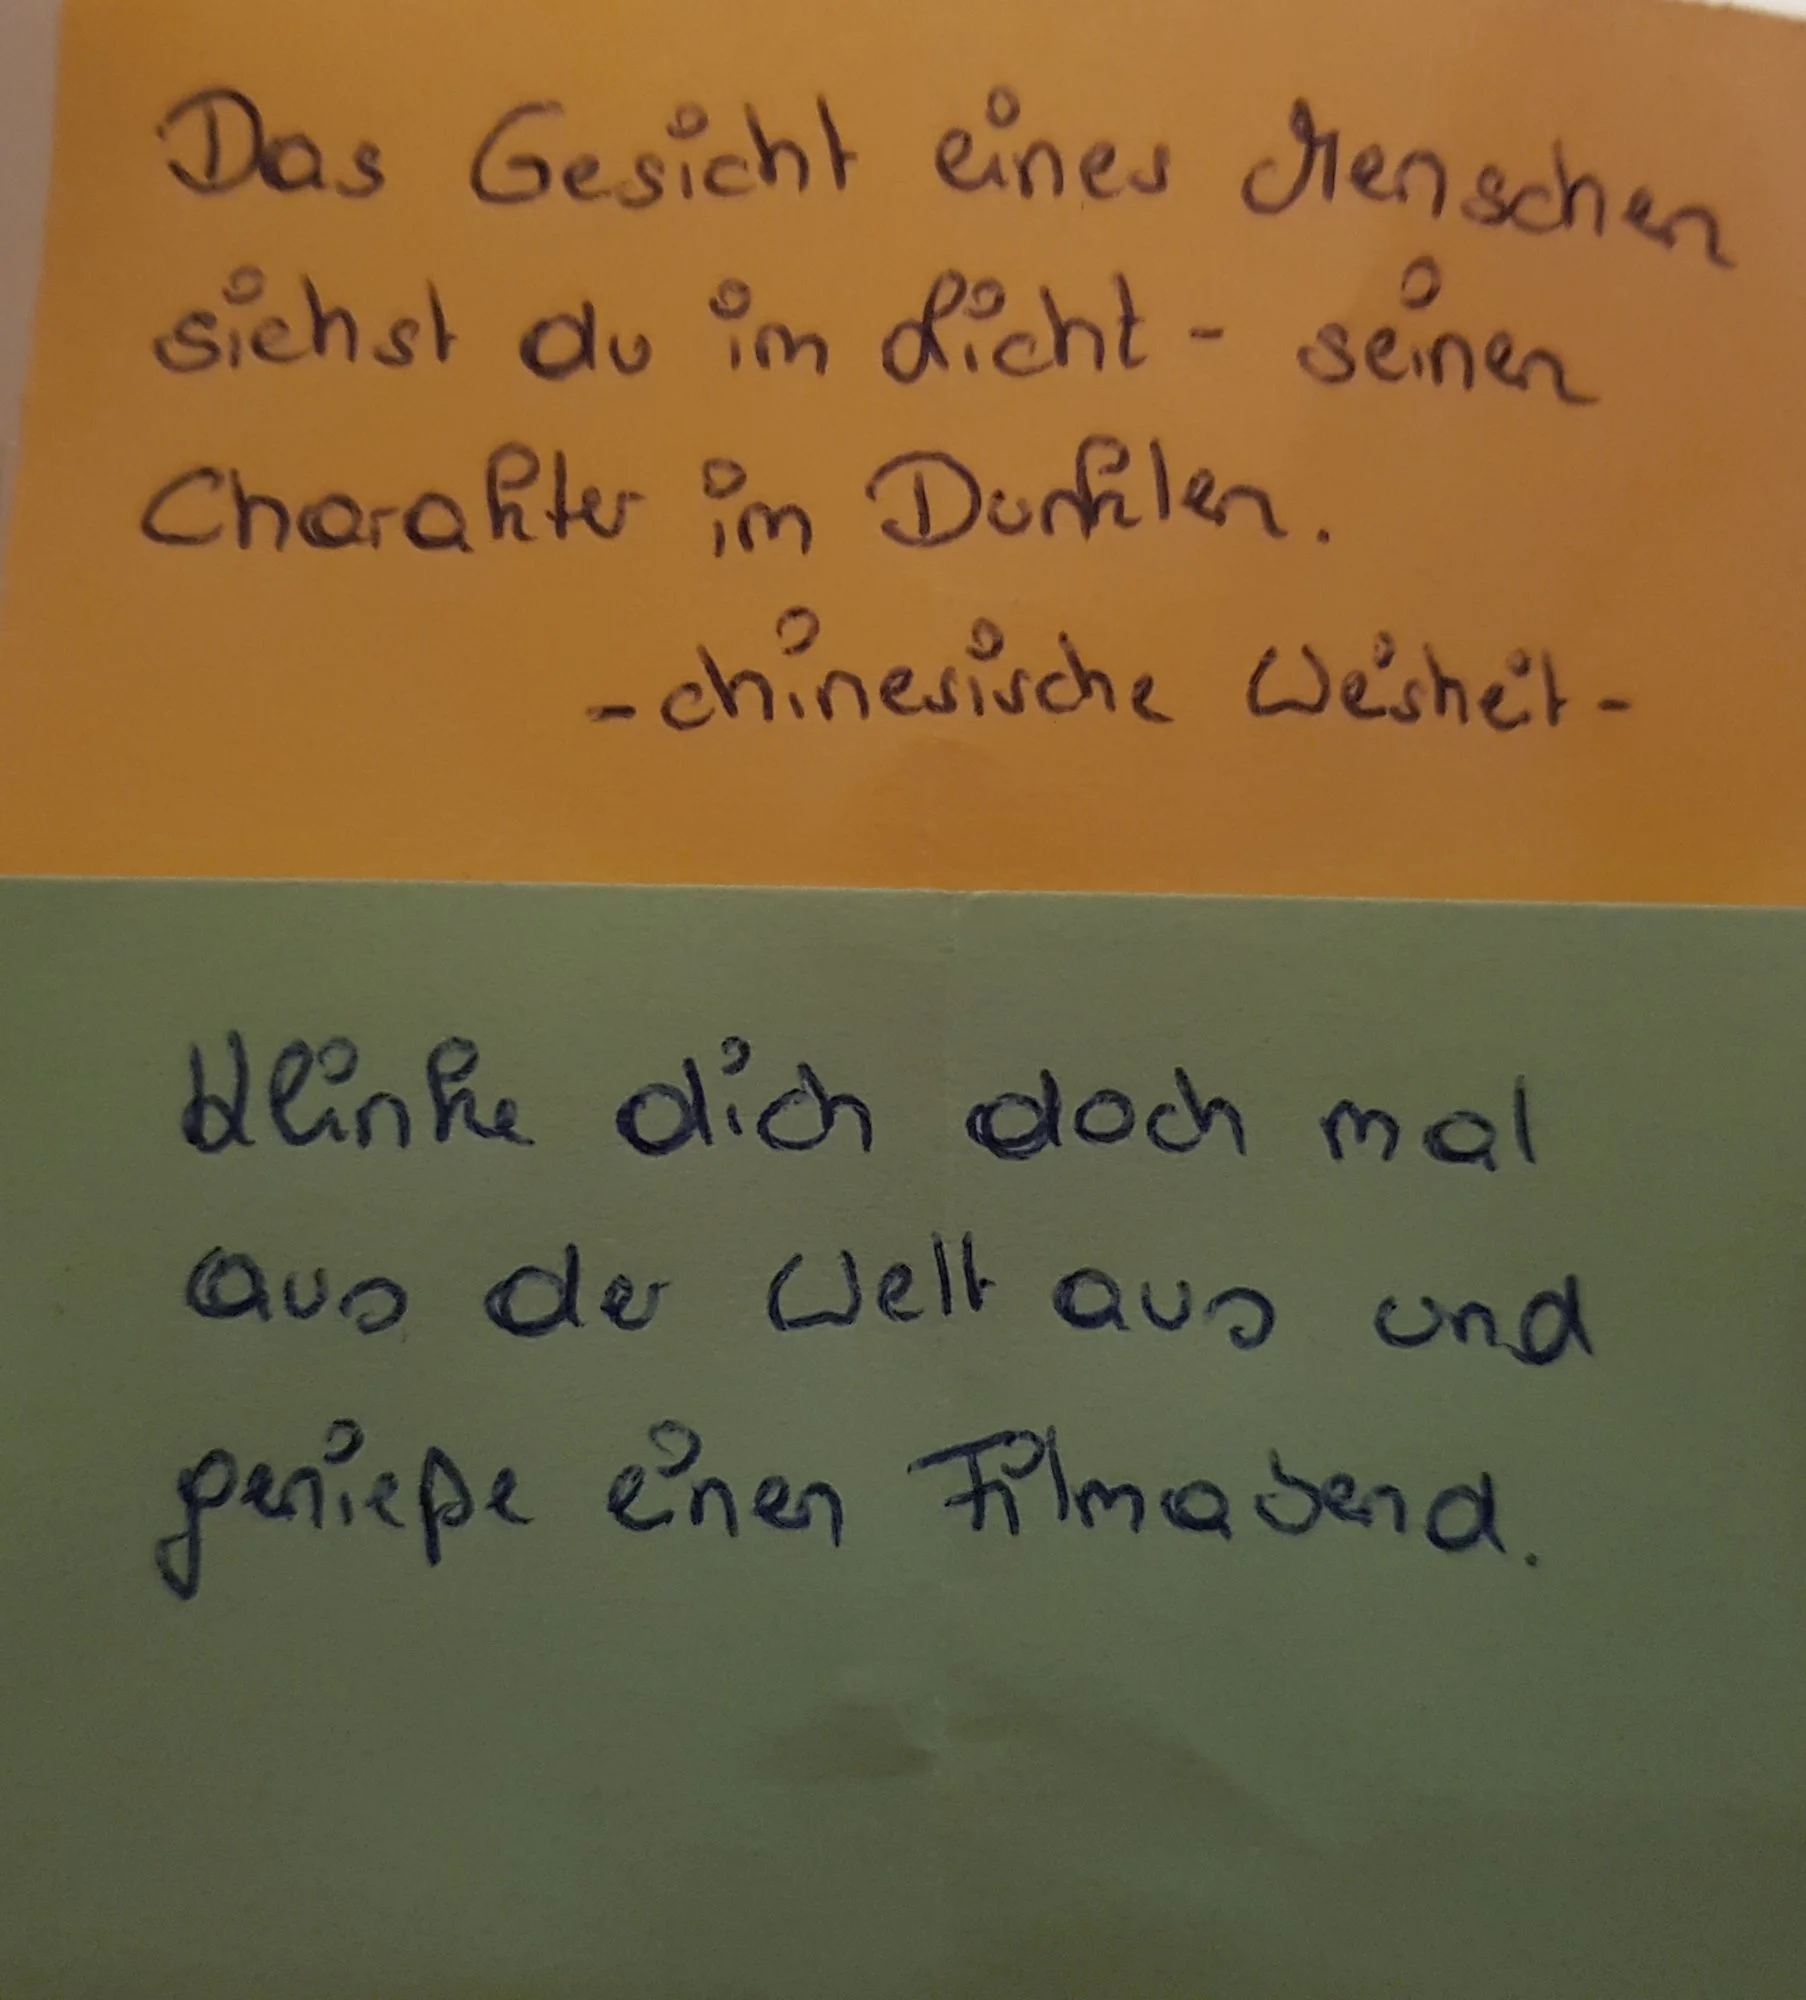 Das Gesicht eines Menschen
siehst du im Licht - seinen
Charakter im Dunklen.
- chinesische Weisheit -
Klinke dich doch mal
aus der Welt aus und
genieße einen Filmabend.